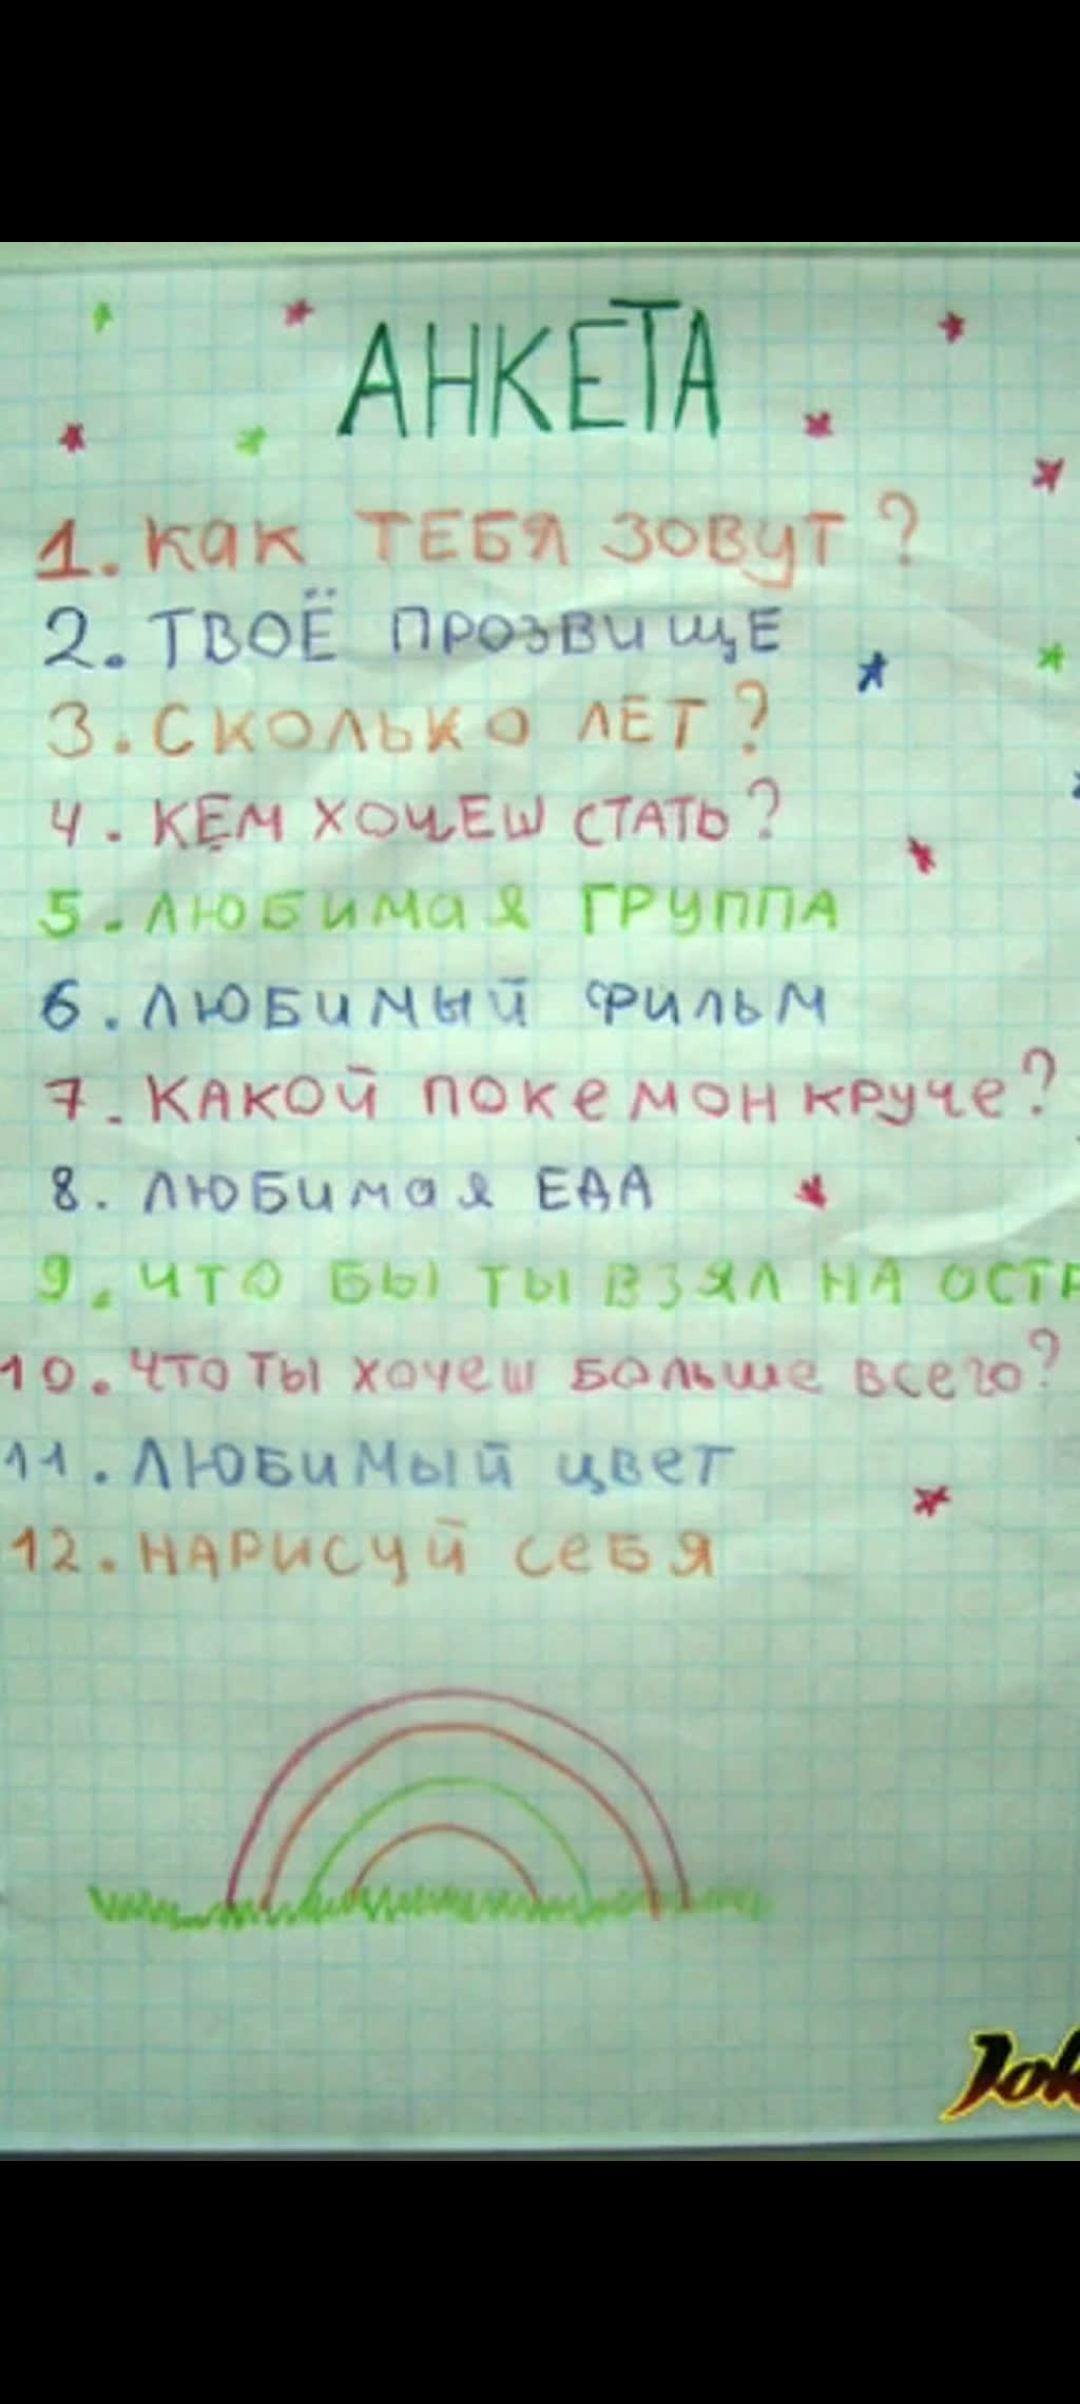 АНКЕТА
1. Как ТЕБЯ ЗОВУТ?
2. ТВОЁ ПРОЗВИЩЕ
3. СКОЛЬКО ЛЕТ?
4. КЕМ ХОЧЕШ СТАТЬ?
5. ЛЮБИМАЯ ГРУППА
6. ЛЮБИМЫЙ ФИЛЬМ
7. КАКОЙ ПОКЕМОН КРУЧЕ?
8. ЛЮБИМАЯ ЕДА
9. ЧТО БЫ ТЫ ВЗЯЛ НА
10. ЧТО ТЫ ХОЧЕШ БОЛЬШЕ ВСЕГО?
11. ЛЮБИМЫЙ ЦВЕТ
12. НАРИСУЙ СЕБЯ